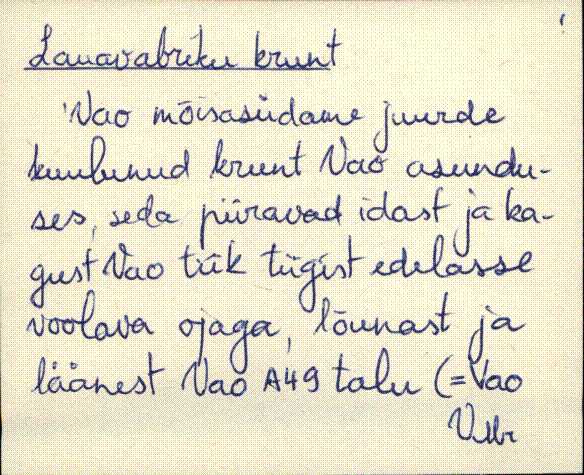 Lauavabriku krunt
'Vao mõisasüdame juurde
kuulunud krunt Vao asundu-
ses, seda piiravad idast ja ka-
gust Vao tiik tiigist edelasse
voolava ojaga, lõunast ja
läänest Vao A49 talu (=Vao